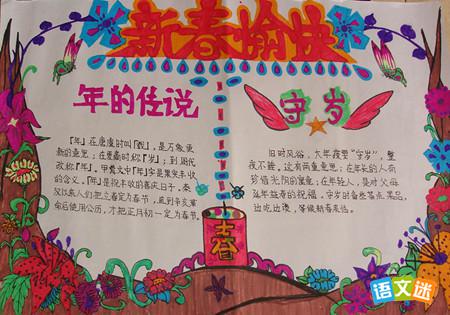 新春愉快
年的传说
「年」在唐虞时叫「载」,是万象更
新的意思;在夏商时称「岁」;到周代
改称「年」。甲骨文中「年」字是果实丰收
的含义,「年」是祝丰收的喜庆日子,秦
汉以来人们把立春定为春节,直到辛亥革
命后使用公历,才把正月初一定为春节。
守岁
旧时风俗,大年霞堂“守岁”,整
夜不睡,这有两重意思:在年长的人有
珍惜光阴的意;在年轻人,是对父母
延年益寿的祝福,守岁时备些茶点、果品,
边吃边谈,等候新春来临。
春
语文迷